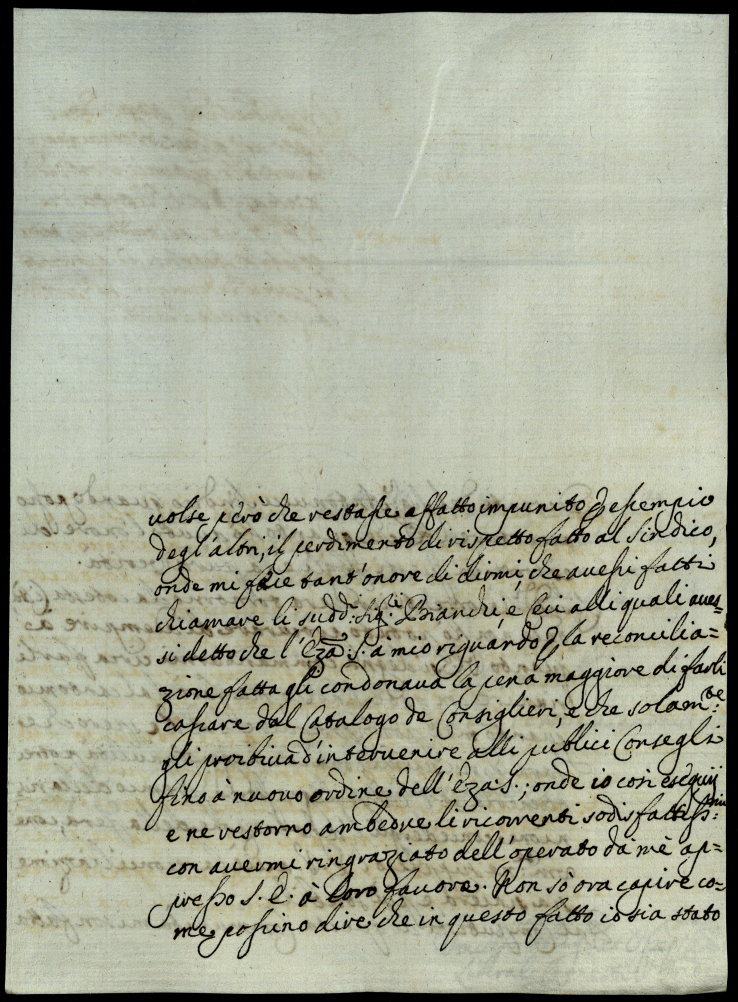 volse però che restasse affatto impunito p esempio
degl'altri, il perdimento di rispetto fatto al Sindico,
onde mi fece tant'onore di dirmi, che avessi fatti
chiamare li sudd: Sig:ri Bianchi, e Ceci alli quali aves=
si detto che l'Ezā S. à mio riguardo p la reconcilia=
zione fatta gli condonava la pena maggiore di farli
cassare dal Catalogo de Consiglieri, e che solam:te
gli proibiva d'intervenire alli publici Consegli
fino à nuovo ordine dell'Eza S.; onde io così eseguij
e ne restorno ambedue li ricorrenti sodisfattiss:mi
con avermi ringraziato dell'operato da mè ap=
presso S. E. à loro favore. Non sò ora capire co=
me possino dire che in questo fatto io sia stato